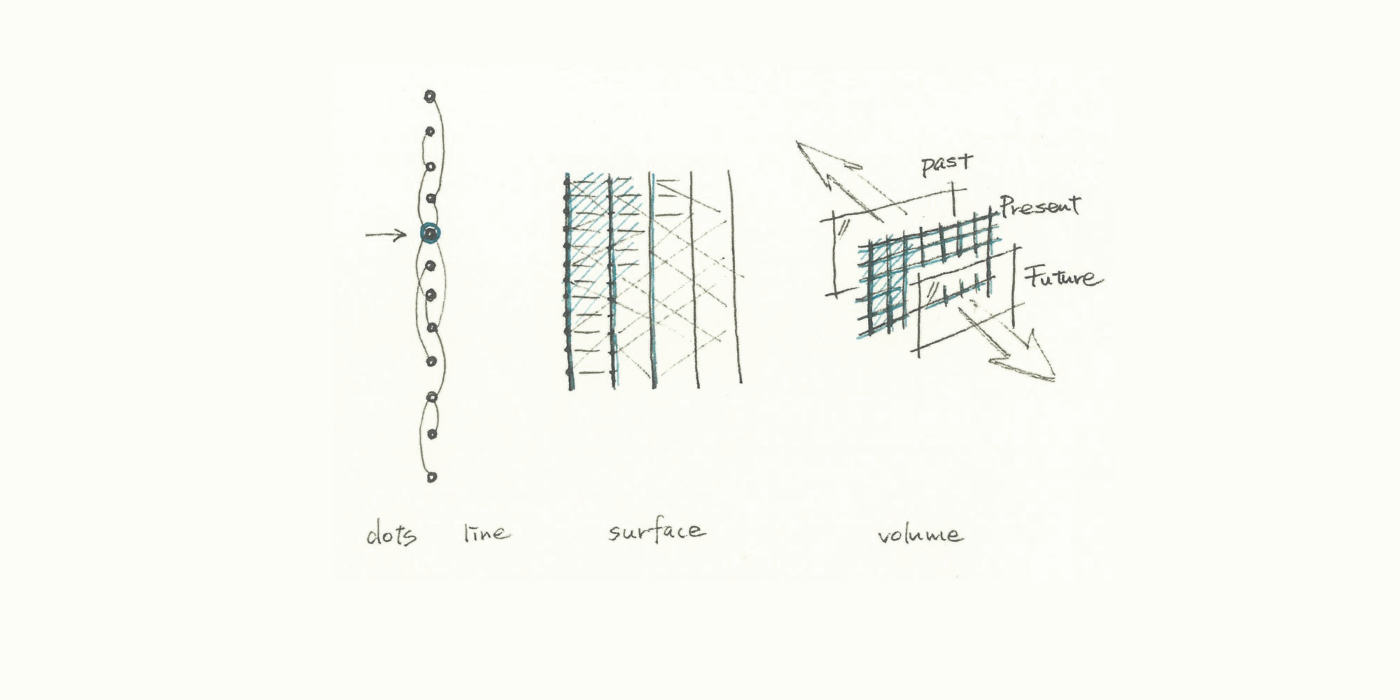 past
Present
Future
dots line surface volume